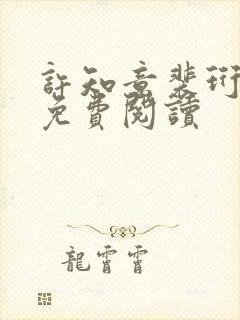 許知意裴珩
免費閱讀
龍霄霄